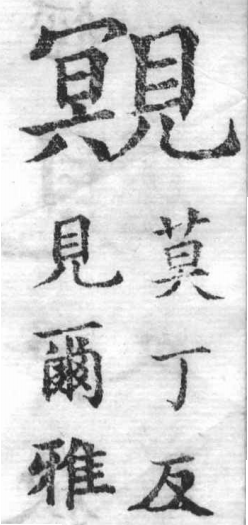 覭
莫丁反
見爾雅